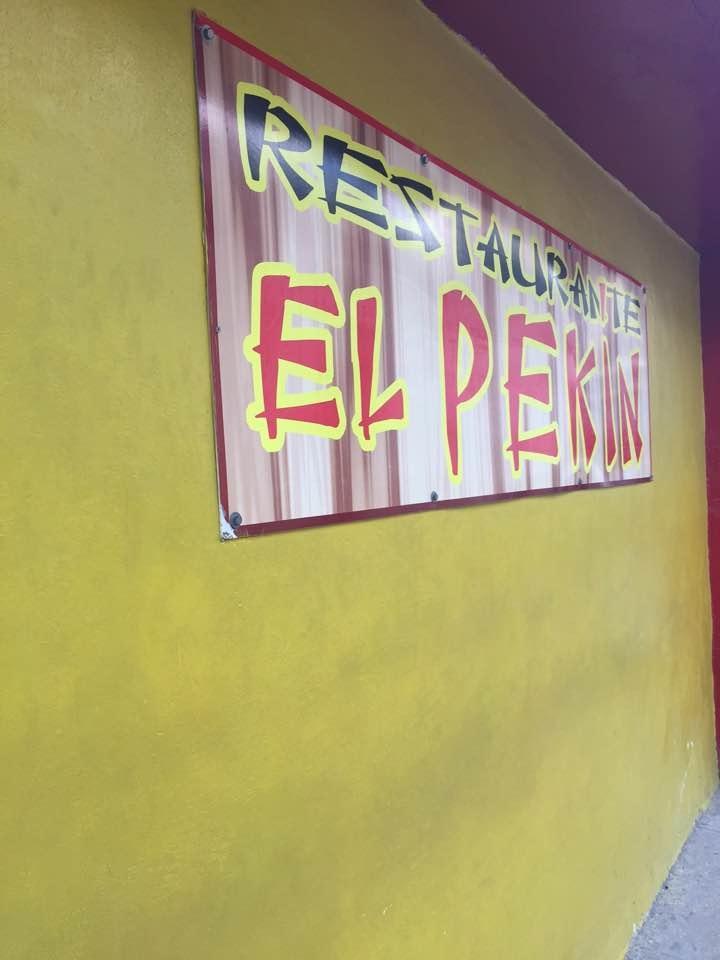 RESTAURANTE
EL PEKIN